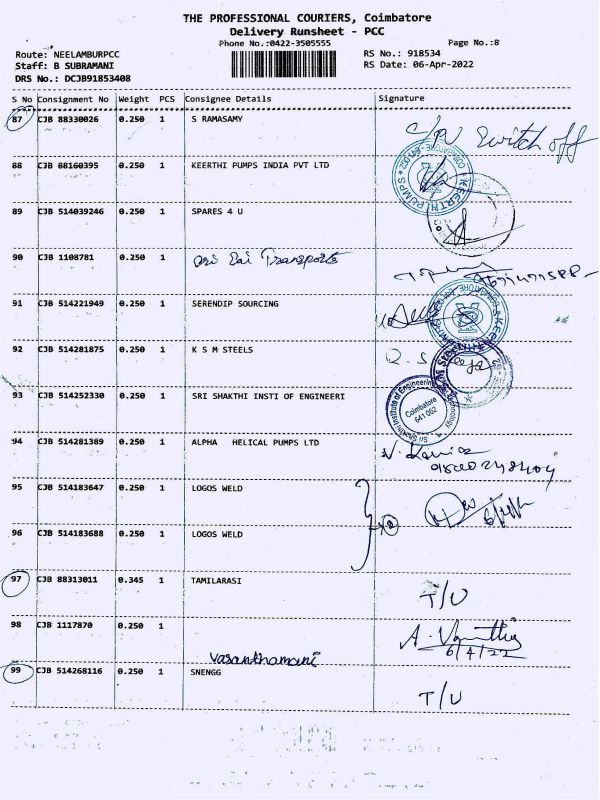 THE PROFESSIONAL COURIERS, Coimbatore
Delivery Runsheet - PCC
Phone No.:0422-3505555 Page No.:8
Route: NEELAMBURPCC RS No.: 918534
Staff: B SUBRAMANI RS Date: 06-Apr-2022
DRS No.: DCJB91853408
S No Consignment No Weight PCS Consignee Details Signature
87 CJB 88330026 0.250 1 S RAMASAMY
C/N Switch off
88 CJB 88160395 0.250 1 KEERTHI PUMPS INDIA PVT LTD
89 CJB 514039246 0.250 1 SPARES 4 U
90 CJB 1108781 0.250 1 Sri Sai Transports
91 CJB 514221949 0.250 1 SERENDIP SOURCING
92 CJB 514281875 0.250 1 K S M STEELS
93 CJB 514252330 0.250 1 SRI SHAKTHI INSTI OF ENGINEERI
Sri Shakthi Institute of Engineering Technology
Coimbatore
641 062
94 CJB 514281389 0.250 1 ALPHA HELICAL PUMPS LTD
95 CJB 514183647 0.250 1 LOGOS WELD
96 CJB 514183688 0.250 1 LOGOS WELD
97 CJB 88313011 0.345 1 TAMILARASI
T/U
98 CJB 1117870 0.250 1
6/4/22
Vasanthamani
99 CJB 514268116 0.250 1 SNENGG
T/U